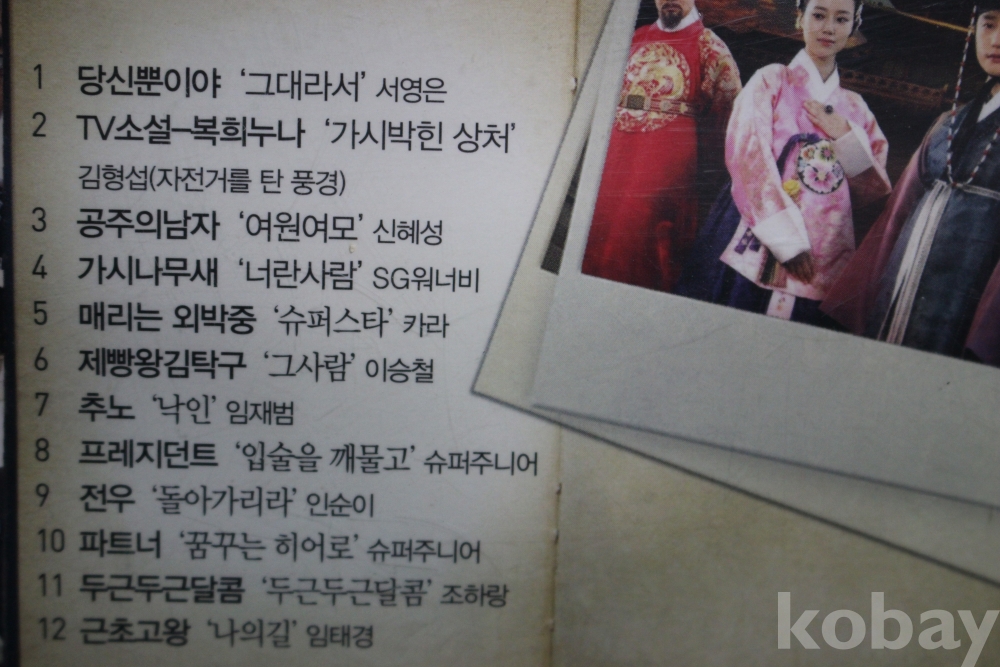 1 당신뿐이야 ‘그대라서’ 서영은
2 TV소설-복희누나 ‘가시박힌 상처’
김형섭(자전거를 탄 풍경)
3 공주의남자 ‘여원여모’ 신혜성
4 가시나무새 ‘너란사람’ SG워너비
5 매리는 외박중 ‘슈퍼스타’ 카라
6 제빵왕김탁구 ‘그사람’ 이승철
7 추노 ‘낙인’ 임재범
8 프레지던트 ‘입술을 깨물고’ 슈퍼주니어
9 전우 ‘돌아가리라’ 인순이
10 파트너 ‘꿈꾸는 히어로’ 슈퍼주니어
11 두근두근달콤 ‘두근두근달콤’ 조하랑
12 근초고왕 ‘나의길’ 임태경
kobay